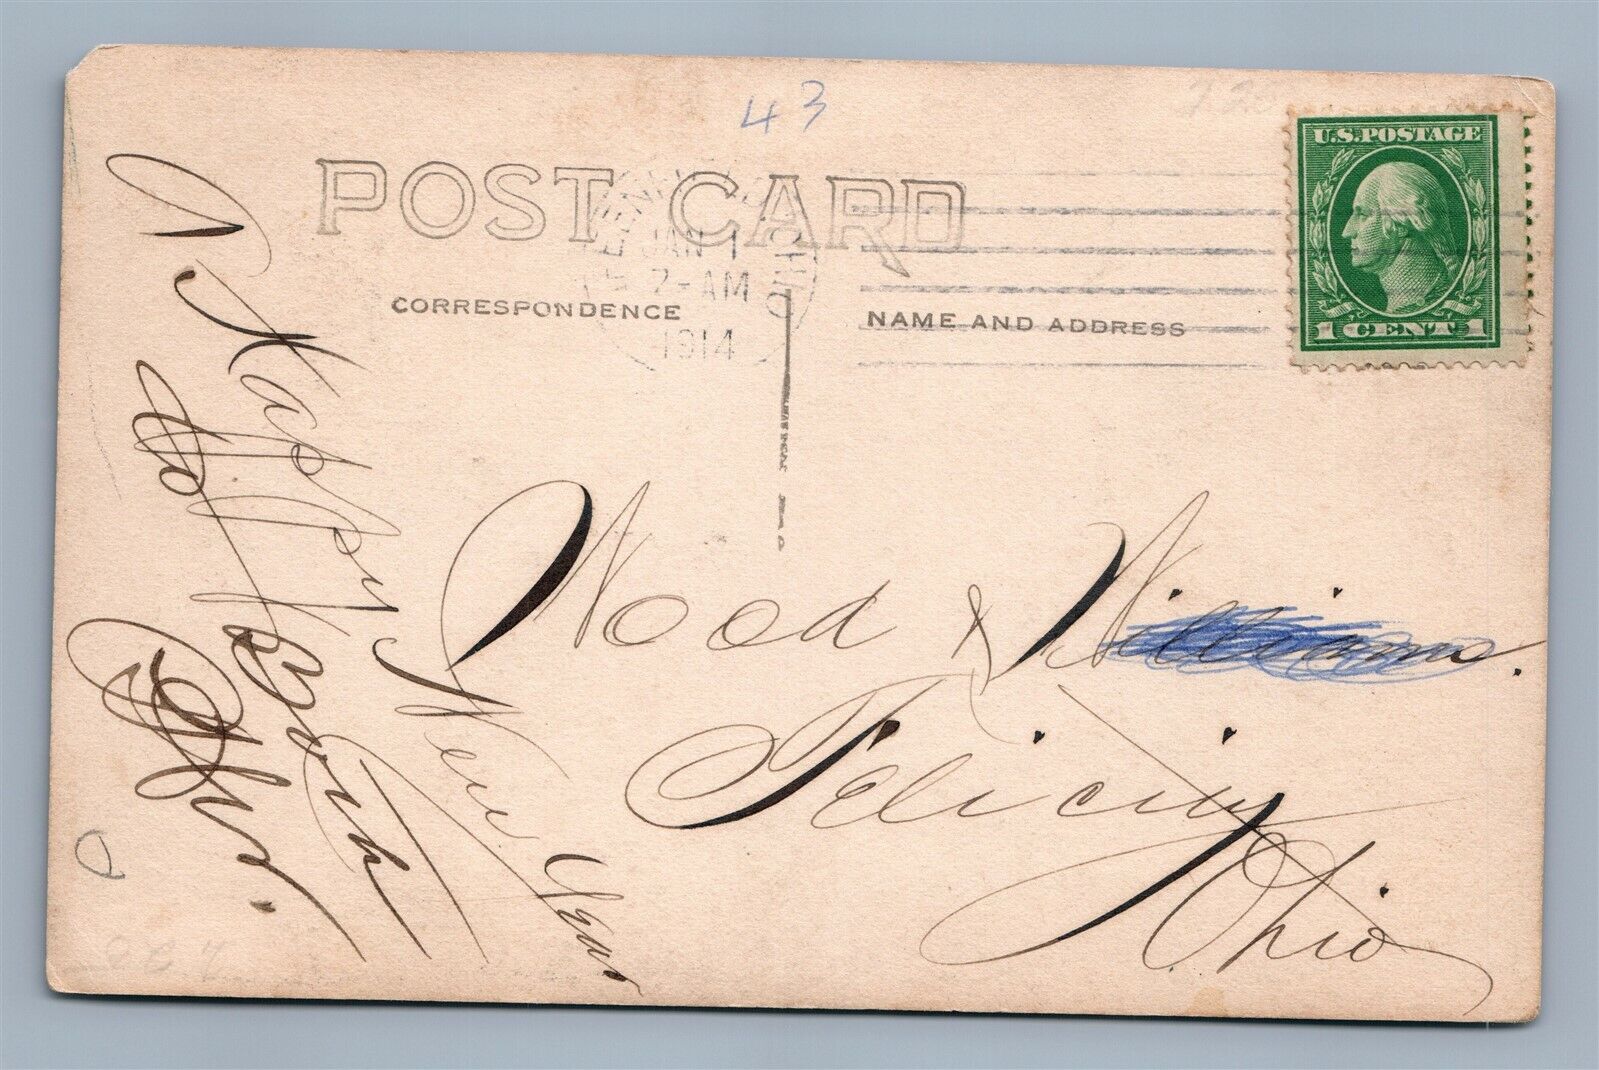 43
POST CARD
JAN 1
7-AM
1914
OHIO
U.S.POSTAGE
1 CENT 1
CORRESPONDENCE
NAME AND ADDRESS
A Happy New Year
to Both
Wood & Williams.
Felicity
Ohio